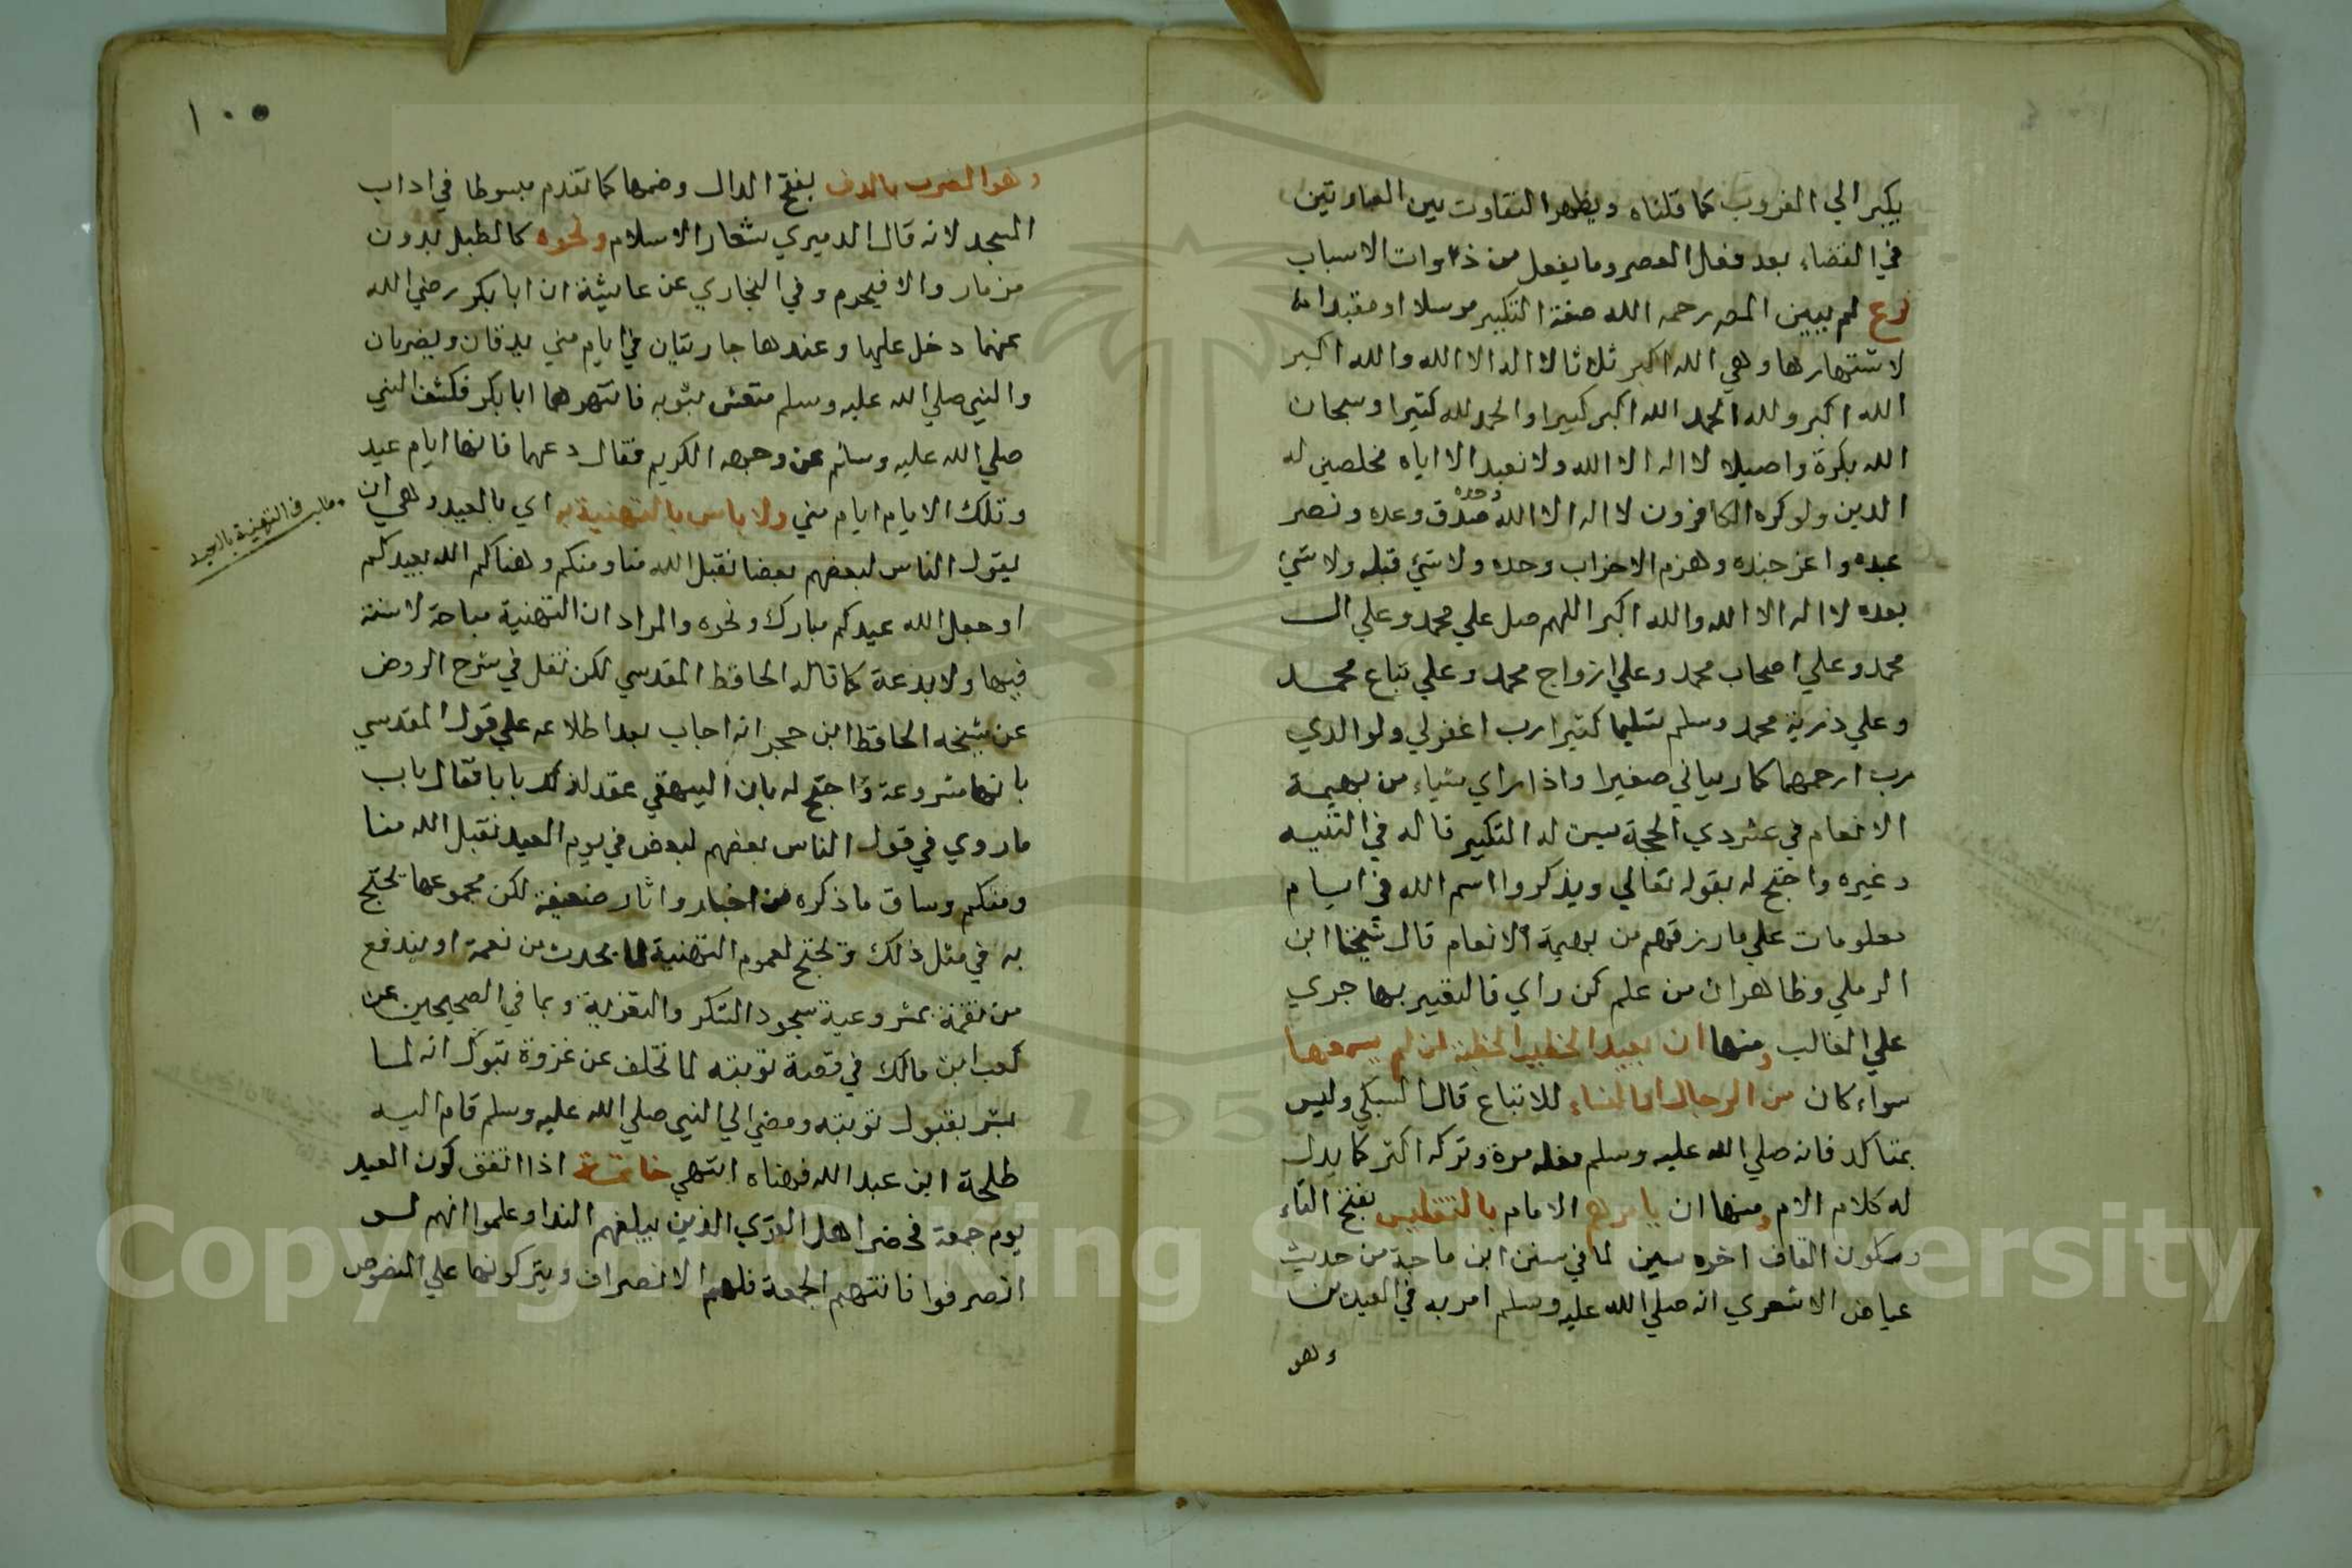 يكبر الي الغروب كما قلناه ويظهر التفاوت بين العبارتين
في القضاء بعد فعل العصر وما يفعل من ذوات الاسباب
فرع لم يبين المص رحمه الله صفة التكبير مرسلا او مقيدا
لاشتهارها وهي الله اكبر ثلاثا لا اله الا الله والله اكبر
الله اكبر ولله الحمد الله اكبر كبيرا والحمد لله كثيرا وسبحان
الله بكرة واصيلا لا اله الا الله ولا نعبد الا اياه مخلصين له
الدين ولو كره الكافرون لا اله الا الله وحده صدق وعده ونصر
عبده واعز جنده وهزم الاحزاب وحده ولا شيئ قبله ولا شيئ
بعده لا اله الا الله والله اكبر اللهم صل علي محمد وعلي ال
محمد وعلي اصحاب محمد وعلي ازواج محمد وعلي تباع محمد
وعلي ذرية محمد وسلم تسليما كثيرا رب اغفرلي ولوالدي
رب ارحمهما كما ربياني صغيرا واذا راي شياء من بهيمة
الانعام في عشر ذي الحجة سن له التكبير قاله في التنبيه
وغيره واحتج له بقوله تعالي ويذكروا اسم الله في ايام
معلومات علي ما رزقهم من بهيمة الانعام قال شيخنا ابن
الرملي وظاهر ان من علم كمن راي فالتعبير بها جري
علي الغالب ومنها ان يعيد الخطيب الخطبة لمن لم يسمعها
سواء كان من الرجال او النساء للاتباع قال السبكي وليس
بمتاكد فانه صلي الله عليه وسلم فعله مرة وتركه اكثر كما يدل
له كلام الام ومنها ان يامرهم الامام بالتقليس بفتح التاء
وسكون القاف اخره سين لما في سنن ابن ماجة من حديث
عياض الاشعري انه صلي الله عليه وسلم امر به في العيدين
وهو
١٠٠
وهو الضرب بالدف بفتح الدال وضمها كما تقدم مبسوطا في اداب
المسجد لانه قال الدميري شعار الاسلام ونحوه كالطبل بدون
مزمار والا فيحرم وفي البخاري عن عايشة ان ابا بكر رضي الله
عنهما دخل عليها وعندها جاريتان في ايام مني يدفان ويضربان
والنبي صلي الله عليه وسلم متغش بثوبه فانتهرهما ابا بكر فكشف النبي
صلي الله عليه وسلم عن وجهه الكريم فقال دعهما فانها ايام عيد
وتلك الايام ايام مني ولا باس بالتهنية به اي بالعيد وهي ان
مطلب في التهنية بالعيد
يقول الناس لبعضهم بعضا تقبل الله منا ومنكم وهناكم الله بعيدكم
او جعل الله عيدكم مبارك ونحوه والمراد ان التهنية مباحة لا سنة
فيها ولا بدعة كما قاله الحافظ المقدسي لكن نقل في شرح الروض
عن شيخه الحافظ ابن حجر انه اجاب بعد اطلاعه علي قول المقدسي
بانها مشروعة واحتج له بان البيهقي عقد لذلك بابا فقال باب
ما روي في قول الناس بعضهم لبعض في يوم العيد تقبل الله منا
ومنكم وساق ما ذكره من اخبار واثار ضعيفة لكن مجموعها يحتج
به في مثل ذلك ويحتج لعموم التهنية لما يحدث من نعمة او يندفع
من نقمة بمشروعية سجود الشكر والتعزية وبما في الصحيحين عن
كعب ابن مالك في قصة توبته لما تخلف عن غزوة تبوك انه لما
بشر بقبول توبته ومضي الي النبي صلي الله عليه وسلم قام اليه
طلحة ابن عبد الله فهناه انتهي خاتمة اذا اتفق كون العيد
يوم جمعة فحضر اهل القري الذين يبلغهم الندا وعلموا انهم لو
انصرفوا فاتتهم الجمعة فلهم الانصراف ويتركونها علي المنصوص
Copyright © King Saud University
195